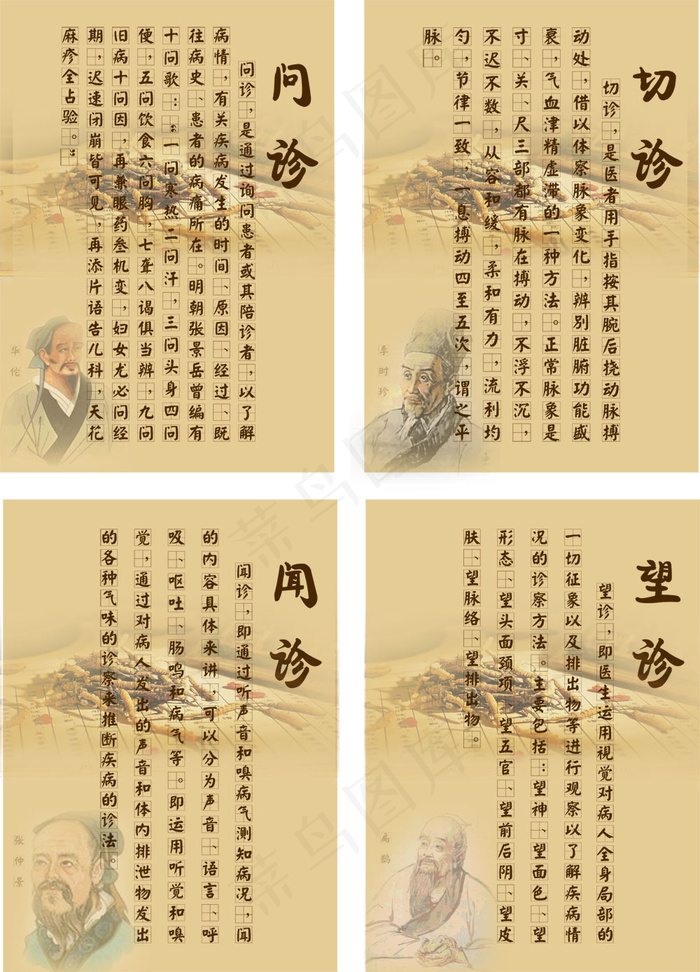 问诊
问诊，是通过询问患者或其陪诊者，以了解
病情，有关疾病发生的时间、原因、经过、既
往病史、患者的病痛所在。明朝张景岳曾编有
十问歌：“一问寒热二问汗，三问头身四问
便，五问饮食六问胸，七聋八渴俱当辨，九问
旧病十问因，再兼眼药叁机变，妇女尤必问经
期，迟速闭崩皆可见，再添片语告儿科，天花
麻疹全占验。”
华佗
切诊
切诊，是医者用手指按其腕后挠动脉搏
动处，借以体察脉象变化，辨别脏腑功能盛
衰，气血津精虚滞的一种方法。正常脉象是
寸、关、尺三部都有脉在搏动，不浮不沉，
不迟不数，从容和缓，柔和有力，流利均
匀，节律一致，一息搏动四至五次，谓之平
脉。
李时珍
闻诊
闻诊，即通过听声音和嗅病气测知病况，闻
的内容具体来讲，可以分为声音、语言、呼
吸、呕吐、肠鸣和病气等。即运用听觉和嗅
觉，通过对病人发出的声音和体内排泄物发出
的各种气味的诊察来推断疾病的诊法。
张仲景
望诊
望诊，即医生运用视觉对病人全身局部的
一切征象以及排出物等进行观察以了解疾病情
况的诊察方法。主要包括：望神、望面色、望
形态、望头面颈项、望五官、望前后阴、望皮
肤、望脉络、望排出物。
扁鹊
菜鸟图库